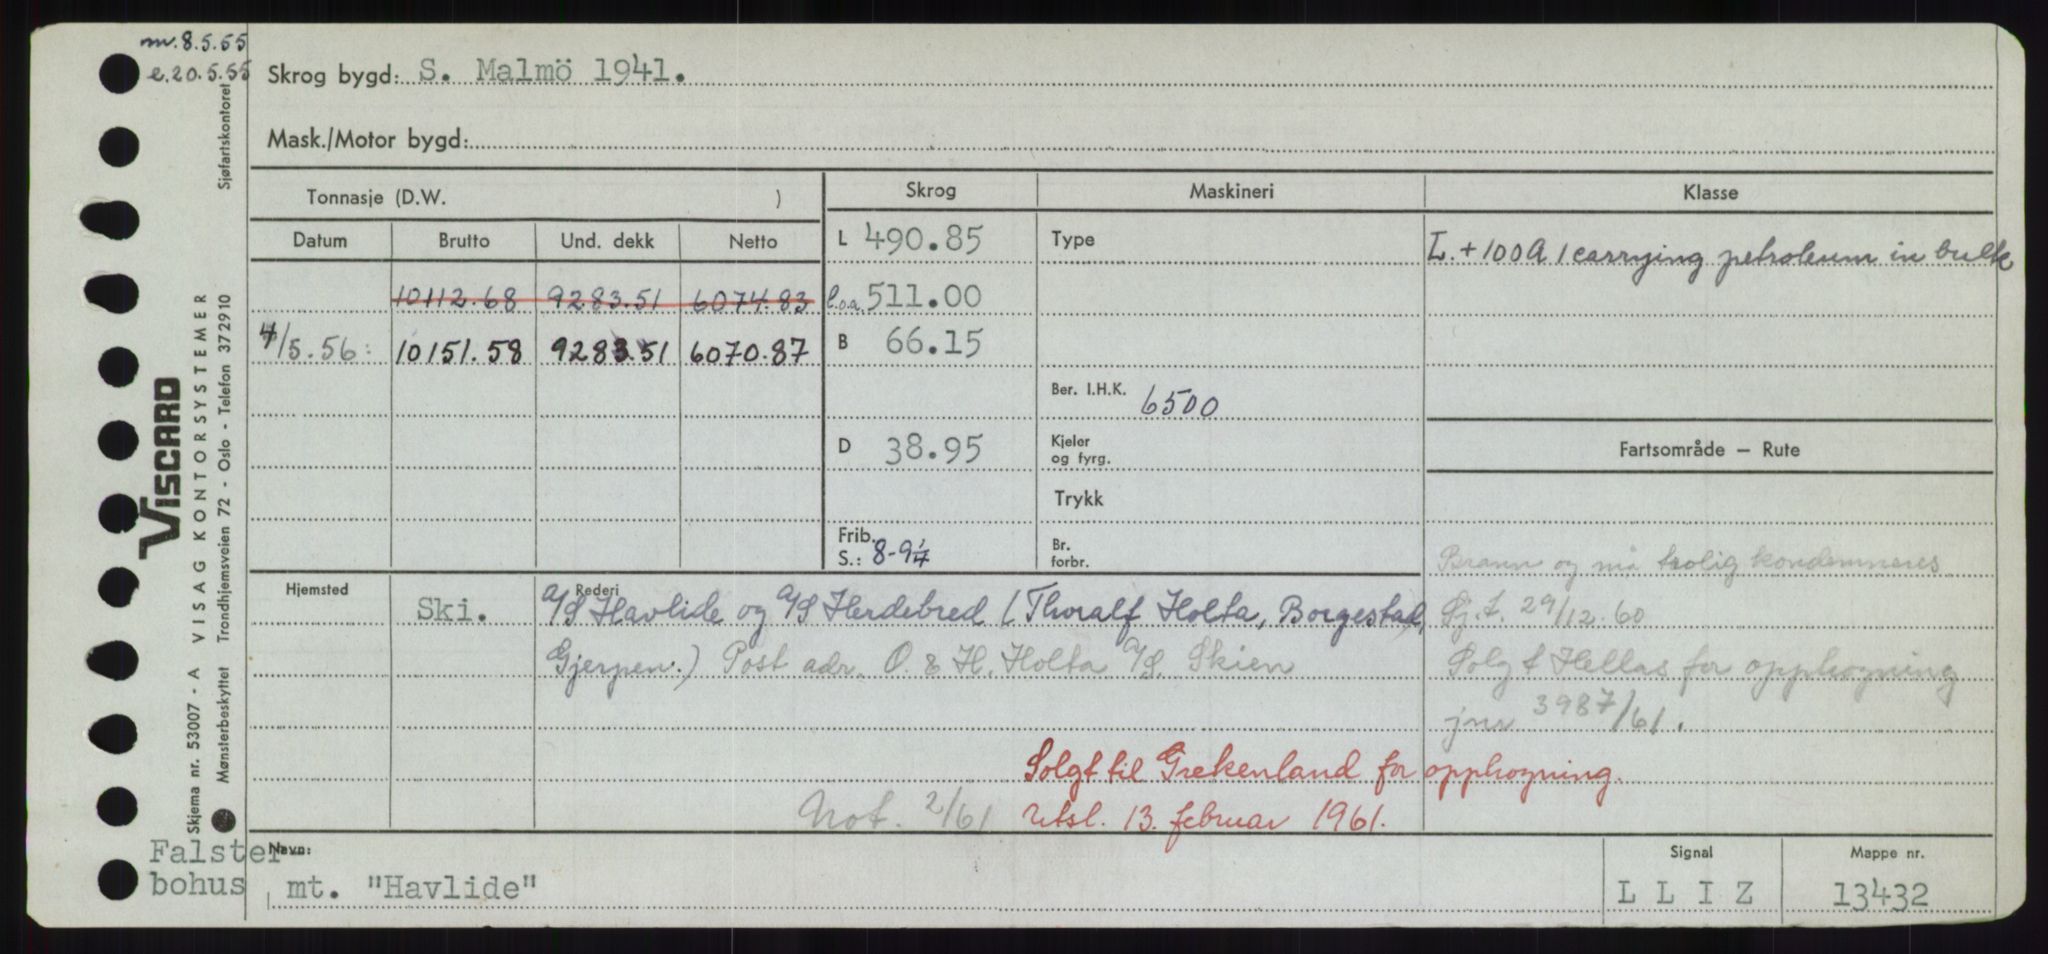 mv. 8.5.55
e. 20.5.55
Skrog bygd: S. Malmö 1941.
Mask./Motor bygd:
Tonnasje (D.W. )
Skrog
Maskineri
Klasse
Datum Brutto Und. dekk Netto
L 490.85
Type
L. + 100 A 1 carrying petroleum in bulk
10112.68 9283.51 6074.83
l.o.a. 511.00
4/5.56: 10151.58 9283.51 6070.87
B 66.15
Ber. I.H.K. 6500
D 38.95
Kjeler
og fyrg.
Fartsområde — Rute
Trykk
Frib.
S.: 8-9¼
Br.
forbr.
Brann og må trolig kondemneres
Hjemsted
Rederi
Ski. A/S Havlide og A/S Herdebred (Thoralf Holta, Borgestad,
Sj.t. 29/12.60
Gjerpen.) Post adr. O. & H. Holta A/S. Skien
Solgt Hellas for opphogning
jnr 3987/61.
Solgt til Grekenland for opphogning.
Not. 2/61
Utsl. 13. februar 1961.
Navn:
mt. "Havlide"
Signal
L L I Z
Mappe nr.
13432
Falster-
bohus
VISCARD
Skjema nr. 53007 - A VISAG KONTORSYSTEMER
Mønsterbeskyttet Trondhjemsveien 72 - Oslo - Telefon 372910
Sjøfartskontoret